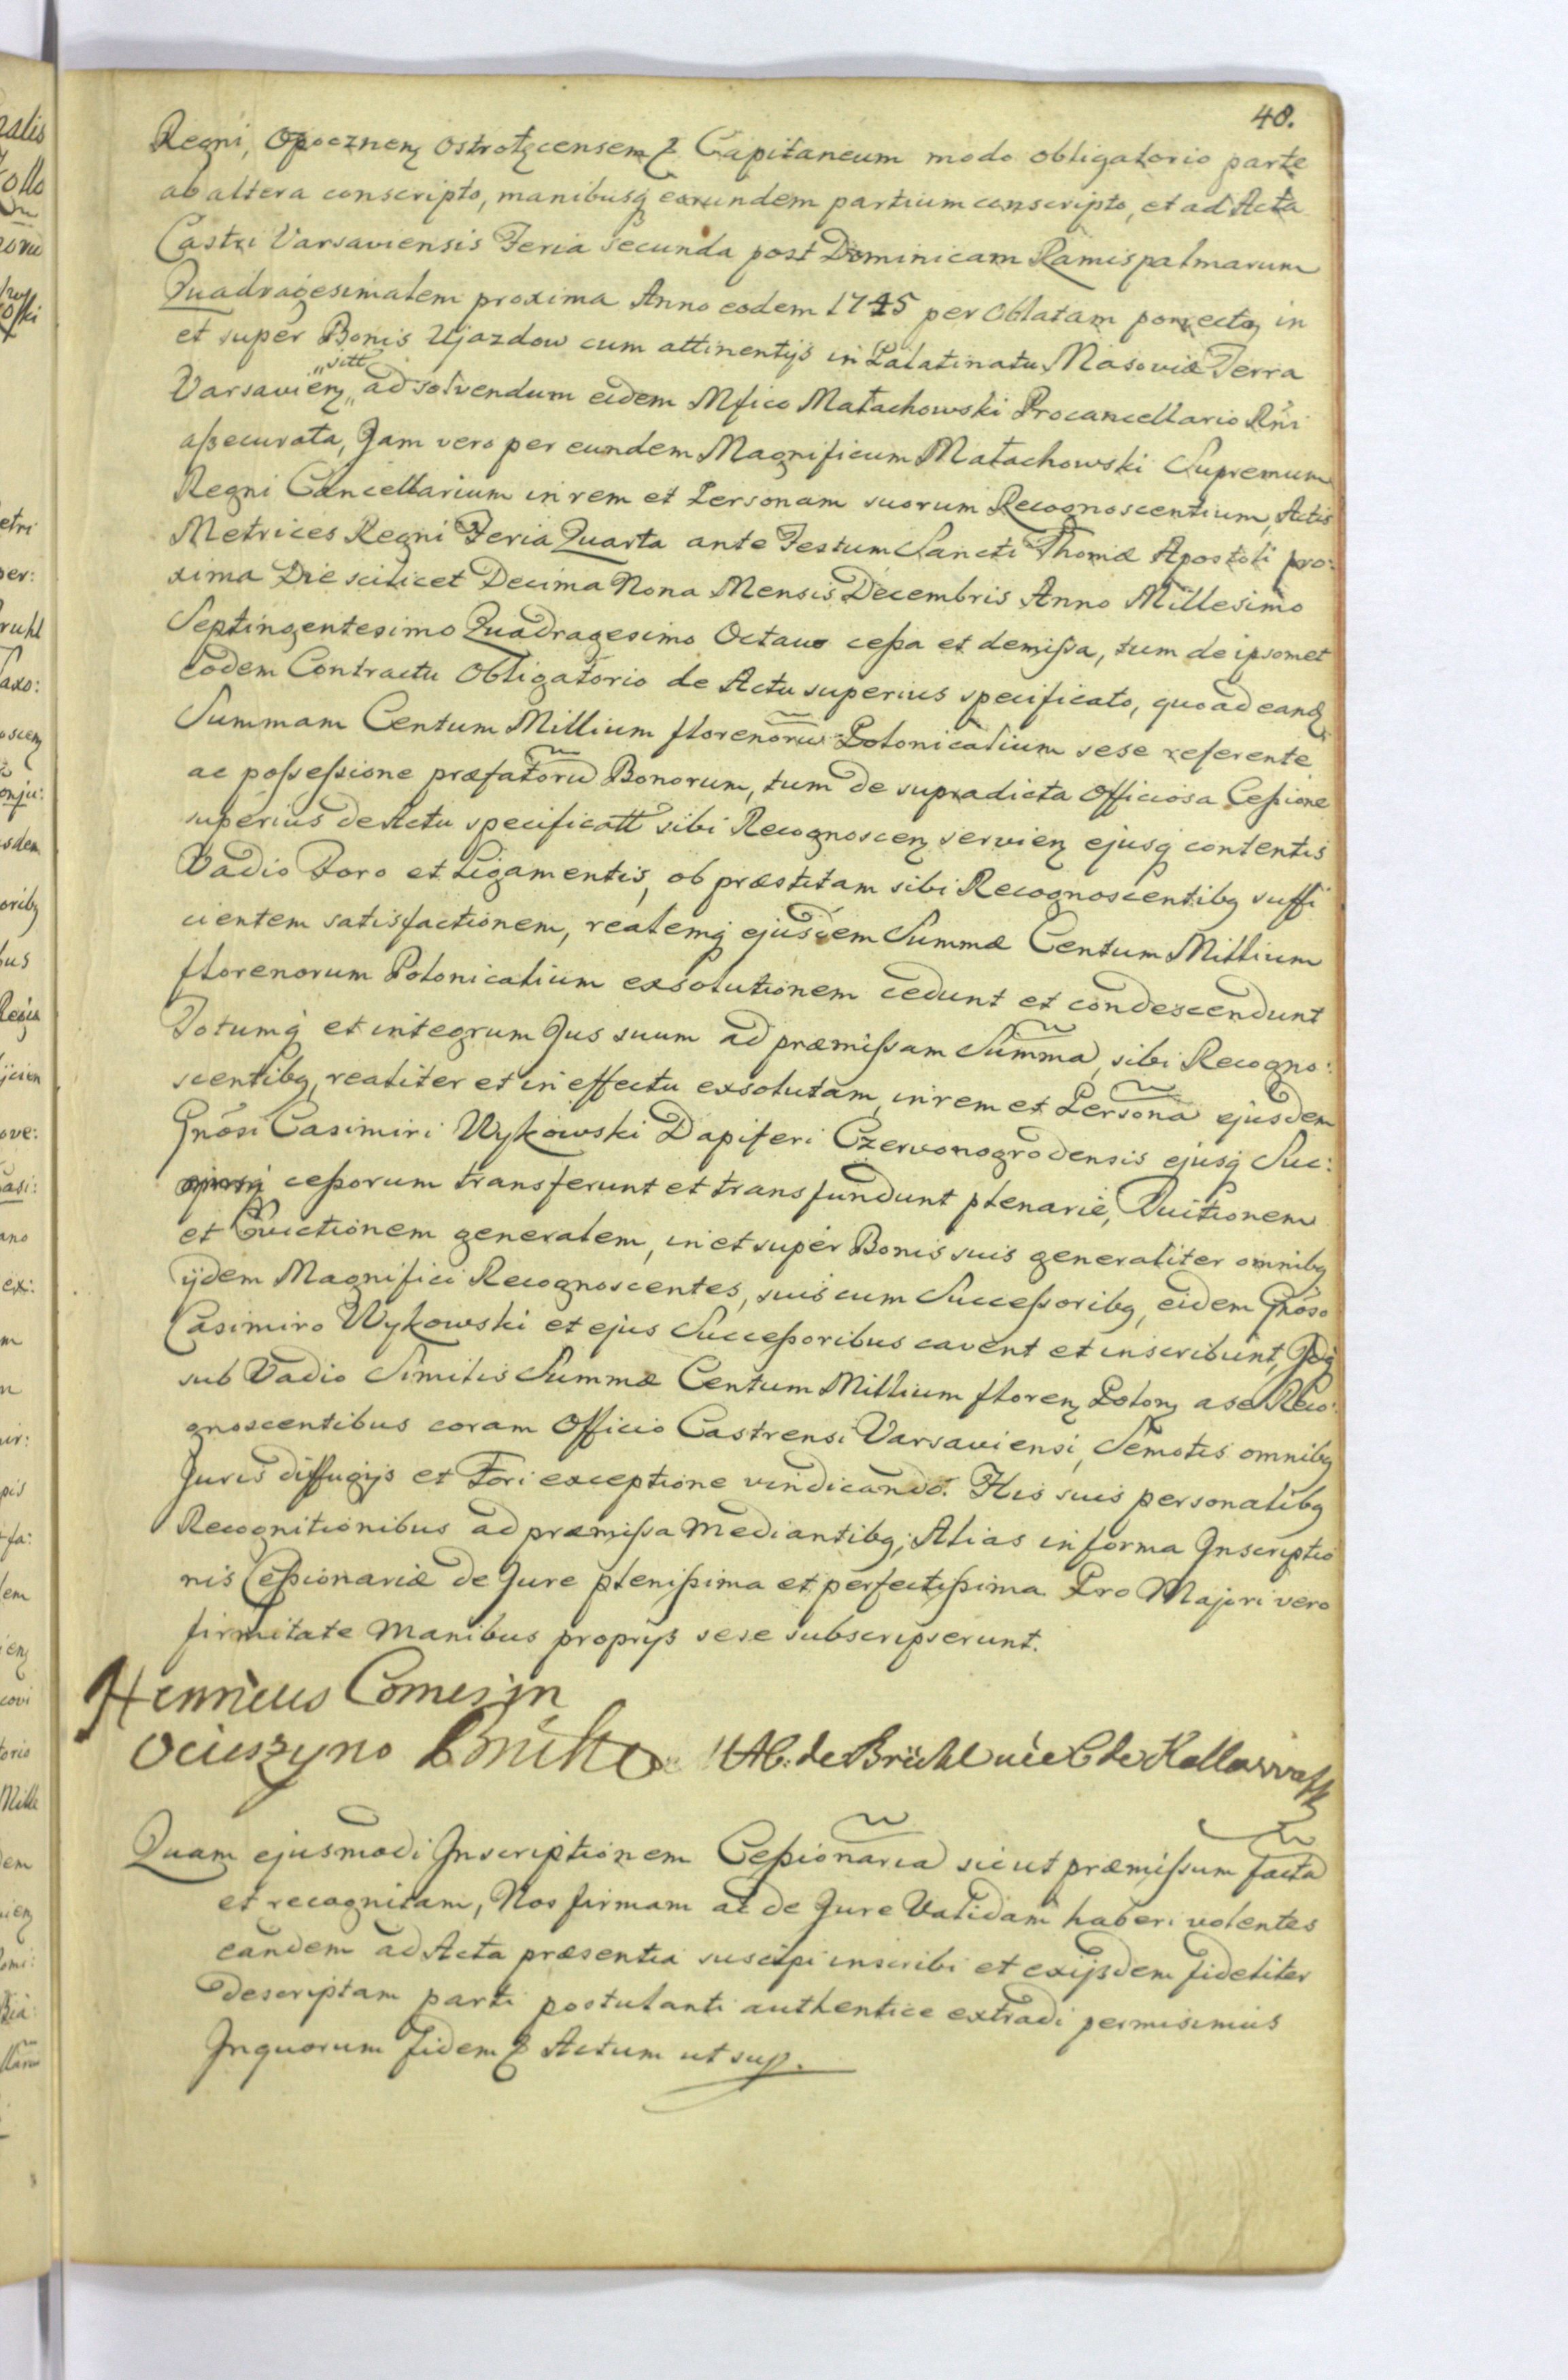 48.
Regni, Opocznen ostrołęcensem Capitaneum modo obligatorio parte
ab altera conscripto, manibusq earundem partium conscripto, et ad Acta
Castri Varsaviensis Feria secunda post Dominicam Ramispalmarum
Quadragesimalem proxima Anno eodem 1745 per Oblatam porrecto, in
et super Bonis Ujazdow cum attinentijs in Palatinatu Masoviæ Terra
Varsavien „sitt„ ad solvendum eidem Mfico Małachowski Procancellario Rni
assecurata, Jam vero per eundem Magnificum Małachowski Supremum
Regni Cancellarium in rem et Personam suorum Recognoscentium, Actis
Metrices Regni Feria Quarta ante Festum Sancti Thomæ Apostoli pro:
xima Die scilicet Decima Nona Mensis Decembris Anno Millesimo
Septingentesimo Quadragesimo Octavo cessa et demissa, tum de ipsomet
eodem Contractu Obligatorio de Actu superius specificato, quo ad eand
Summam Centum Millium florenoru Polonicalium sese referente
ac possessione præfatoru Bonorum, tum de supradicta Officiosa Cessione
superius de Actu specificatt sibi Recognoscen servien ejusq contentis
Vadio Foro et Ligamentis, ob præstitam sibi Recognoscentibq suffi
cientem satisfactionem, realemq ejusdem Summæ Centum Millium
florenorum Polonicalium exsolutionem cedunt et condescendunt
Totumq et integrum Jus suum ad præmissam Summa, sibi Recogno:
scentibq, realiter et in effectu exsolutam, in rem et Persona ejusdem
Gnosi Casimiri Wykowski Dapiferi Czervonogrodensis ejusq Suc:
cessorum transferunt et transfundunt plenarie, Quitionem
et Evictionem generalem, in et super Bonis suis generaliter omnibq
ijdem Magnifici Recognoscentes, suis cum Successoribq, eidem Gnoso
Casimiro Wykowski et ejus Successoribus cavent et inscribunt, Idq
sub Vadio Similis Summæ Centum Millium floren Polon a se Reco:
gnoscentibus coram Officio Castrensi Varsaviensi, Semotis omnibq
Juris diffugijs et Fori exceptione vindicando. His suis personalibq
Recognitionibus ad præmissa mediantibq; Alias in forma Inscriptio
nis Cessionariæ de Jure plenissima et perfectissima. Pro Majori vero
firmitate manibus proprijs sese subscripserunt.
Henricus Comes in
Ocieszyno Brühl MAC: de Brühl née C de Kollowrath
Quam ejusmodi Inscriptionem Cessionaria sicut præmissum facta
et recognitam, Nos firmam ac de Jure Validam haberi volentes
eandem ad Acta præsentia suscipi inscribi et exijsdem fideliter
descriptam parti postulanti authentice extradi permisimus
Inquorum fidem Actum ut sup.